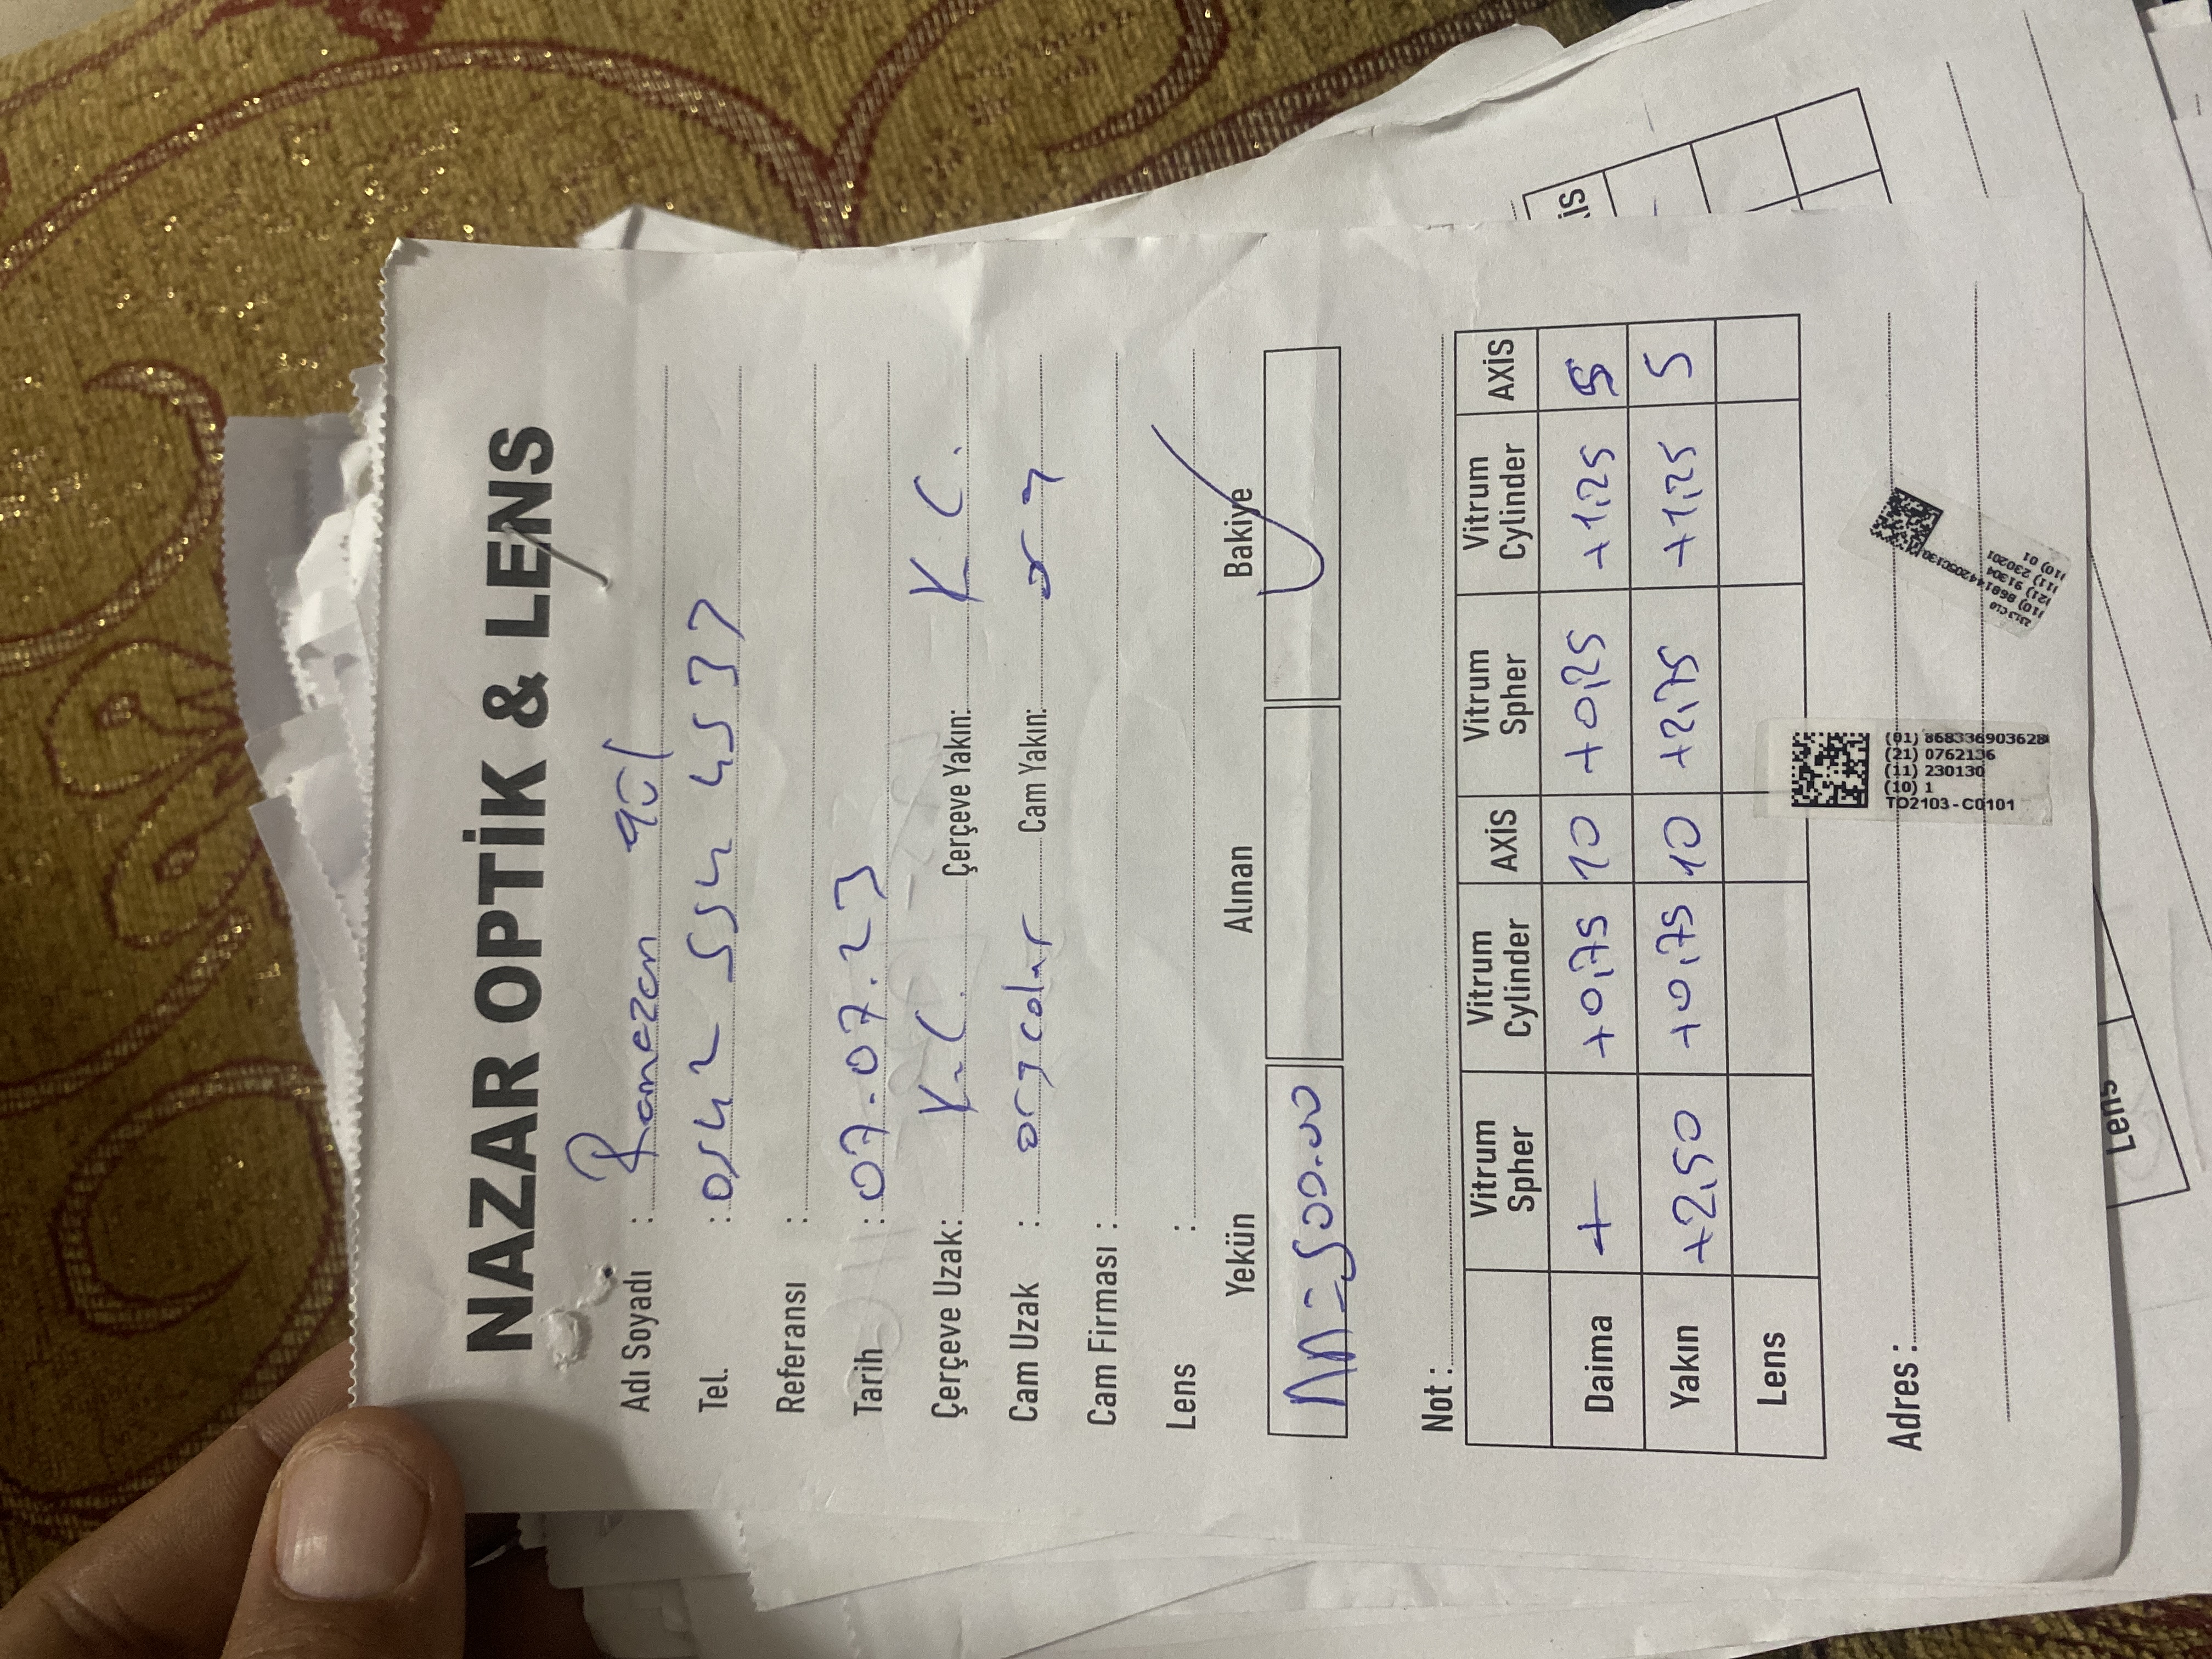 NAZAR OPTİK & LENS
Adı Soyadı : Ramazan gül
Tel. : 0542 554 4537
Referansı :
Tarih : 07.07.23
Çerçeve Uzak: K.C. Çerçeve Yakın: K C.
Cam Uzak : org colar Cam Yakın: org
Cam Firması :
Lens :
Yekün Alınan Bakiye
=500.00
Not :
Vitrum Spher Vitrum Cylinder AXİS Vitrum Spher Vitrum Cylinder AXİS
Daima + +0,75 10 +0,25 +1,25 5
Yakın +2,50 +0,75 10 +2,75 +1,25 5
Lens
Adres :
(01) 868336903628
(21) 0762136
(11) 230130
(10) 1
TD2103 - C0101
(21) 91304
(11) 230201
(10) 01
İS
Lens